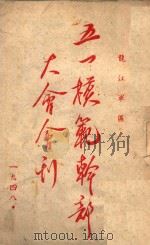 龍江軍區
五一模範幹部
大會会刊
一九四八·